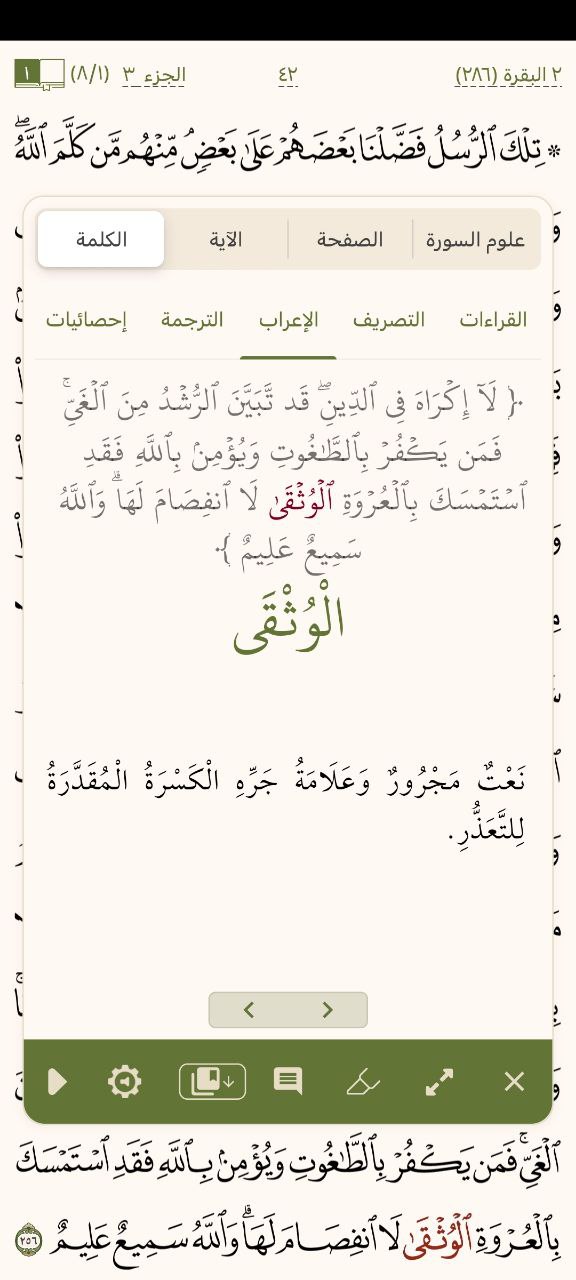 ٢ البقرة (٢٨٦) ٤٢ الجزء ٣ (٨/١) ١
* تِلْكَ ٱلرُّسُلُ فَضَّلْنَا بَعْضَهُمْ عَلَىٰ بَعْضٍ مِّنْهُم مَّن كَلَّمَ ٱللَّهُ ۖ
علوم السورة الصفحة الآية الكلمة
القراءات التصريف الإعراب الترجمة إحصائيات
﴿ لَآ إِكْرَاهَ فِى ٱلدِّينِ ۖ قَد تَّبَيَّنَ ٱلرُّشْدُ مِنَ ٱلْغَىِّ ۚ
فَمَن يَكْفُرْ بِٱلطَّٰغُوتِ وَيُؤْمِنۢ بِٱللَّهِ فَقَدِ
ٱسْتَمْسَكَ بِٱلْعُرْوَةِ ٱلْوُثْقَىٰ لَا ٱنفِصَامَ لَهَا ۗ وَٱللَّهُ
سَمِيعٌ عَلِيمٌ ﴾
الْوُثْقَى
نَعْتٌ مَجْرُورٌ وَعَلَامَةُ جَرِّهِ الْكَسْرَةُ الْمُقَدَّرَةُ
لِلتَّعَذُّرِ.
ٱلْغَىِّ ۚ فَمَن يَكْفُرْ بِٱلطَّٰغُوتِ وَيُؤْمِنۢ بِٱللَّهِ فَقَدِ ٱسْتَمْسَكَ
بِٱلْعُرْوَةِ ٱلْوُثْقَىٰ لَا ٱنفِصَامَ لَهَا ۗ وَٱللَّهُ سَمِيعٌ عَلِيمٌ ٢٥٦